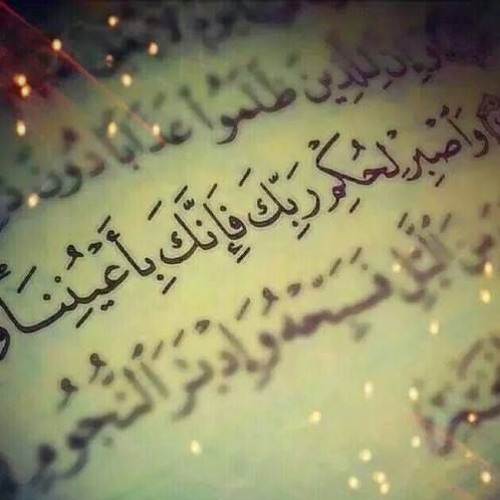 وَإِنَّ لِلَّذِينَ ظَلَمُوا عَذَابًا دُونَ
وَٱصْبِرْ لِحُكْمِ رَبِّكَ فَإِنَّكَ بِأَعْيُنِنَا
وَمِنَ ٱلَّيْلِ فَسَبِّحْهُ وَإِدْبَٰرَ ٱلنُّجُومِ